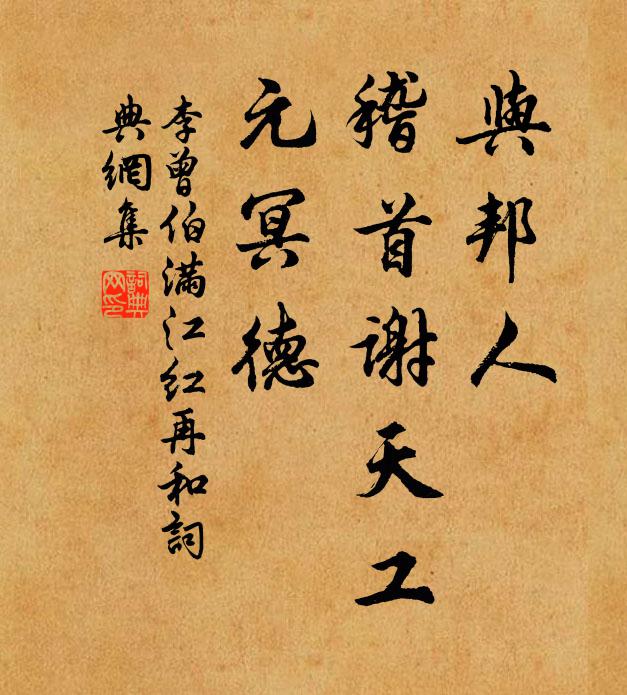 與邦人
稽首謝天工
元冥德
李曾伯滿江紅再和詞
典網集
詞典
网印